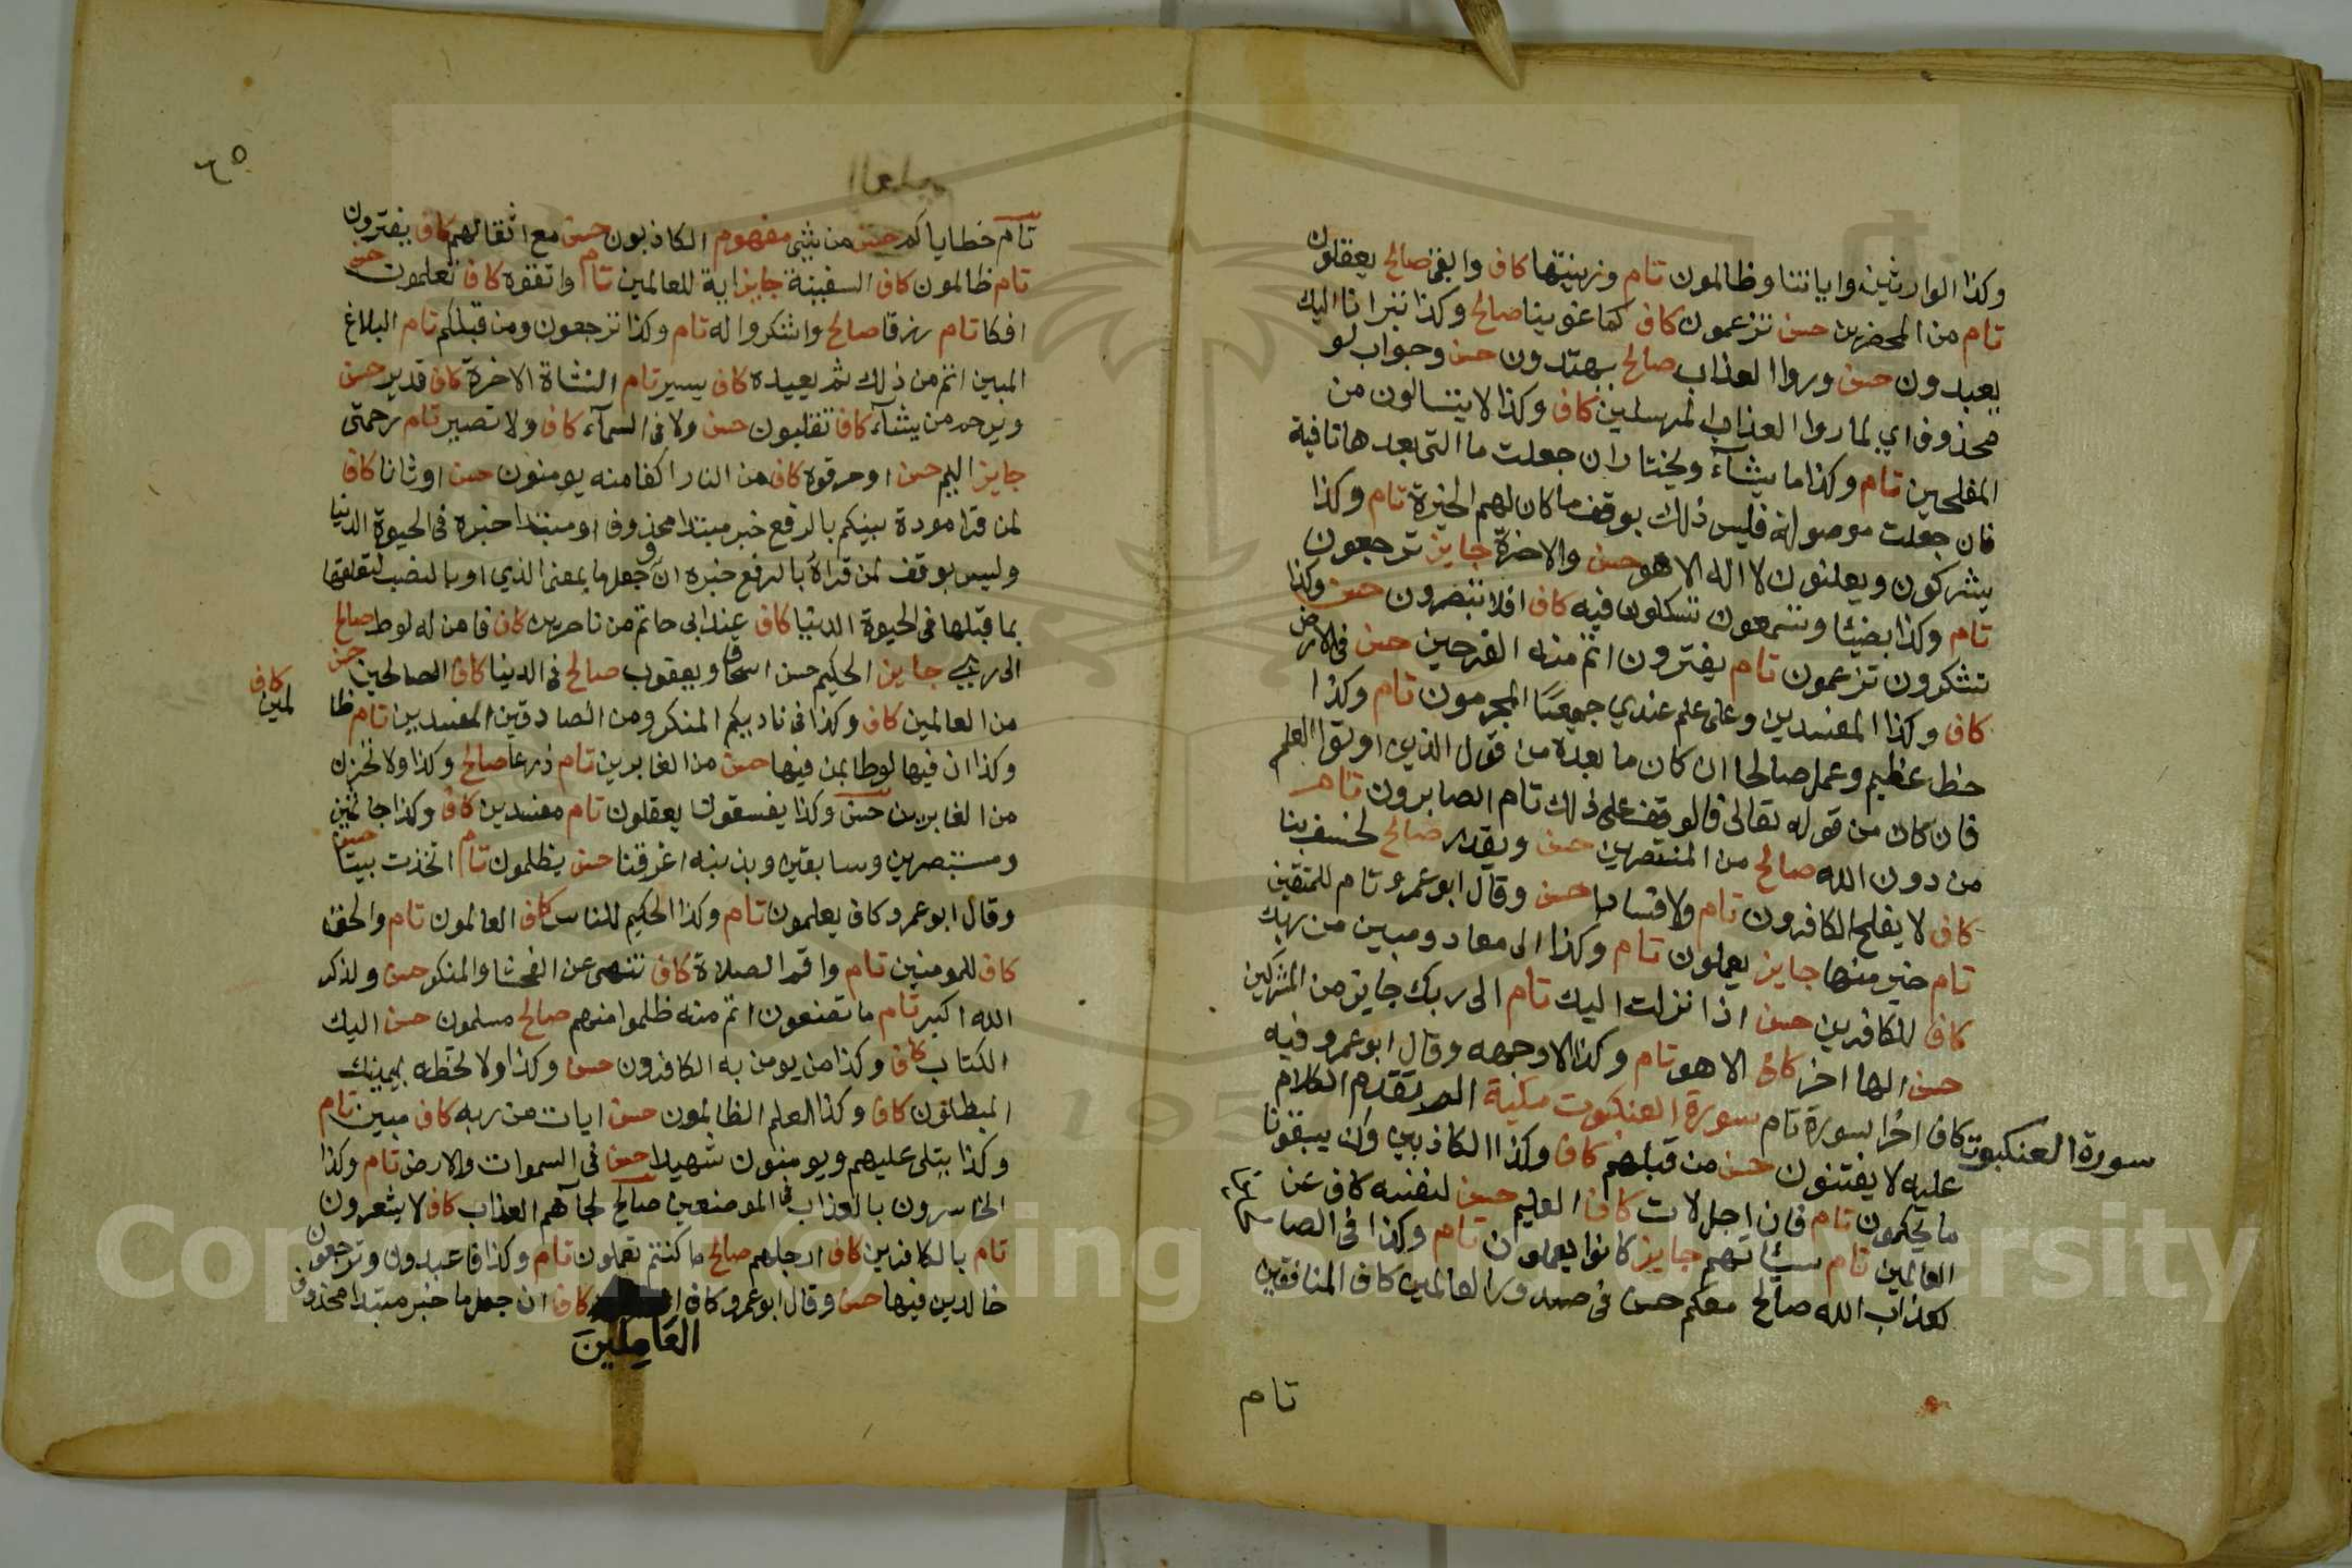 وكذا الوارثين واياتنا وظالمون تام وزينتها كاف وابقى صالح يعقلون
تام من المحضرين حسن تزعمون كاف كما غوينا صالح وكذا تبرانا اليك
يعبدون حسن وروا العذاب صالح يهتدون حسن وجواب لو
محذوف اي لما روا العذاب المرسلين كاف وكذا لا يتسالون من
المفلحين تام وكذا ما يشآء ويختار ان جعلت ما التي بعدها نافية
فان جعلت موصولة فليس ذلك بوقف ما كان لهم الخيرة تام وكذا
يشركون ويعلنون لا اله الا هو حسن والاخرة جايز ترجعون
تام وكذا بضيئا وتسمعون تسكنون فيه كاف افلا تبصرون حسن وكذا
تشكرون تزعمون تام يفترون اتم منه الفرحين حسن في الارض
كاف وكذا المفسدين وعلى علم عندي جمعًا المجرمون تام وكذا
حظ عظيم وعمل صالحا ان كان ما بعده من قول الذين اوتوا العلم
فان كان من قوله تعالى فالوقف على ذلك تام الصابرون تام
من دون الله صالح من المنتصرين حسن ويقدر صالح لخسف بنا
كاف لا يفلح الكافرون تام ولا فسادا حسن وقال ابو عمرو تام للمتقين
تام خير منها جايز يعملون تام وكذا الى معاد ومبين من ربك
كاف للكافرين حسن اذ انزلت اليك تام الى ربك جايز من المشركين
حسن الها اخر كاف الا هو تام وكذا الا وجهه وقال ابو عمرو فيه
كاف اخر السورة تام سورة العنكبوت مكية الم تقدم الكلام
سورة العنكبوت
عليه لا يفتنون حسن من قبلهم كاف وكذا الكاذبين وان يسبقونا
ما يحكمون تام فان اجل لات كاف العليم حسن لنفسه كاف عن
العالمين تام سيئاتهم جايز كانوا يعملون تام وكذا في الصا
كعذاب الله صالح معكم حسن في صدور العالمين كاف المنافقين
تام
٦٥
تام خطاياكم حسن من شيء مفهوم الكاذبون حسن مع اثقالهم كاف يفترون
تام ظالمون كاف السفينة جايز اية للعالمين تام واتقوه كاف تعلمون حسن
افكا تام رزقا صالح واشكروا له تام وكذا ترجعون ومن قبلكم تام البلاغ
المبين اتم من ذلك ثم يعيده كاف يسير تام النشاة الاخرة كاف قدير حسن
ويرحم من يشآء كاف تقلبون حسن ولا في السمآء كاف ولا نصير تام رحمتي
جايز اليم حسن او حرقوه كاف من النار اكفا منه يومنون حسن اوثانا كاف
لمن قرا مودة بينكم بالرفع خبر مبتدا محذوف او مبتدا خبره في الحيوة الدنيا
وليس بوقف لمن قراه بالرفع خبره ان وجعل ما بمعنى الذي او بالنصب لتعلقها
بما قبلها في الحيوة الدنيا كاف عند ابي حاتم من ناصرين كاف فامن له لوط صالح
الى ربي جايز الحكيم حسن اسحاق ويعقوب صالح في الدنيا كاف الصالحين حسن
من العالمين كاف وكذا في ناديكم المنكر ومن الصادقين المفسدين تام ظا
لمين كاف
وكذا ان فيها لوطا بمن فيها حسن من الغابرين تام ذرعا صالح وكذا ولا تحزن
من الغابرين حسن وكذا يفسقون يعقلون تام مفسدين كاف وكذا جاثمين
ومستبصرين وسابقين وبذنبه اغرقنا حسن يظلمون تام اتخذت بيتا حسن
وقال ابو عمرو كاف يعلمون تام وكذا الحكيم للناس كاف العالمون تام والحق
كاف للمومنين تام واقم الصلاة كاف تنهى عن الفحشا والمنكر حسن ولذكر
الله اكبر تام ما تصنعون اتم منه ظلموا منهم صالح مسلمون حسن اليك
الكتاب كاف وكذا من يومن به الكافرون حسن وكذا ولا تخطه بيمينك
المبطلون كاف وكذا العلم الظالمون حسن ايات من ربه كاف مبين تام
وكذا يتلى عليهم ويومنون شهيدا حسن في السموات والارض تام وكذا
الخاسرون بالعذاب في الموضعين صالح لجآهم العذاب كاف لا يشعرون
تام بالكافرين كاف ارجلهم صالح ما كنتم تعملون تام وكذا فاعبدون وترجعون
خالدين فيها حسن وقال ابو عمرو كاف كاف ان جعل ما خبر مبتدا محذوف
العَامِلينَ